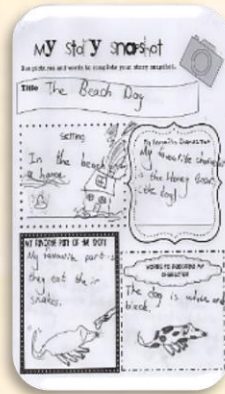 My story snapshot
Use pictures and words to complete your story snapshot.
Title The Beach Dog
Setting
In the beach
a home.
My favourite character
My favourite character
is the Honey
little dog!
My favourite part of the story
My favourite part is
they eat the ir
snakes.
Words to describe my
character
The dog is white and
black.